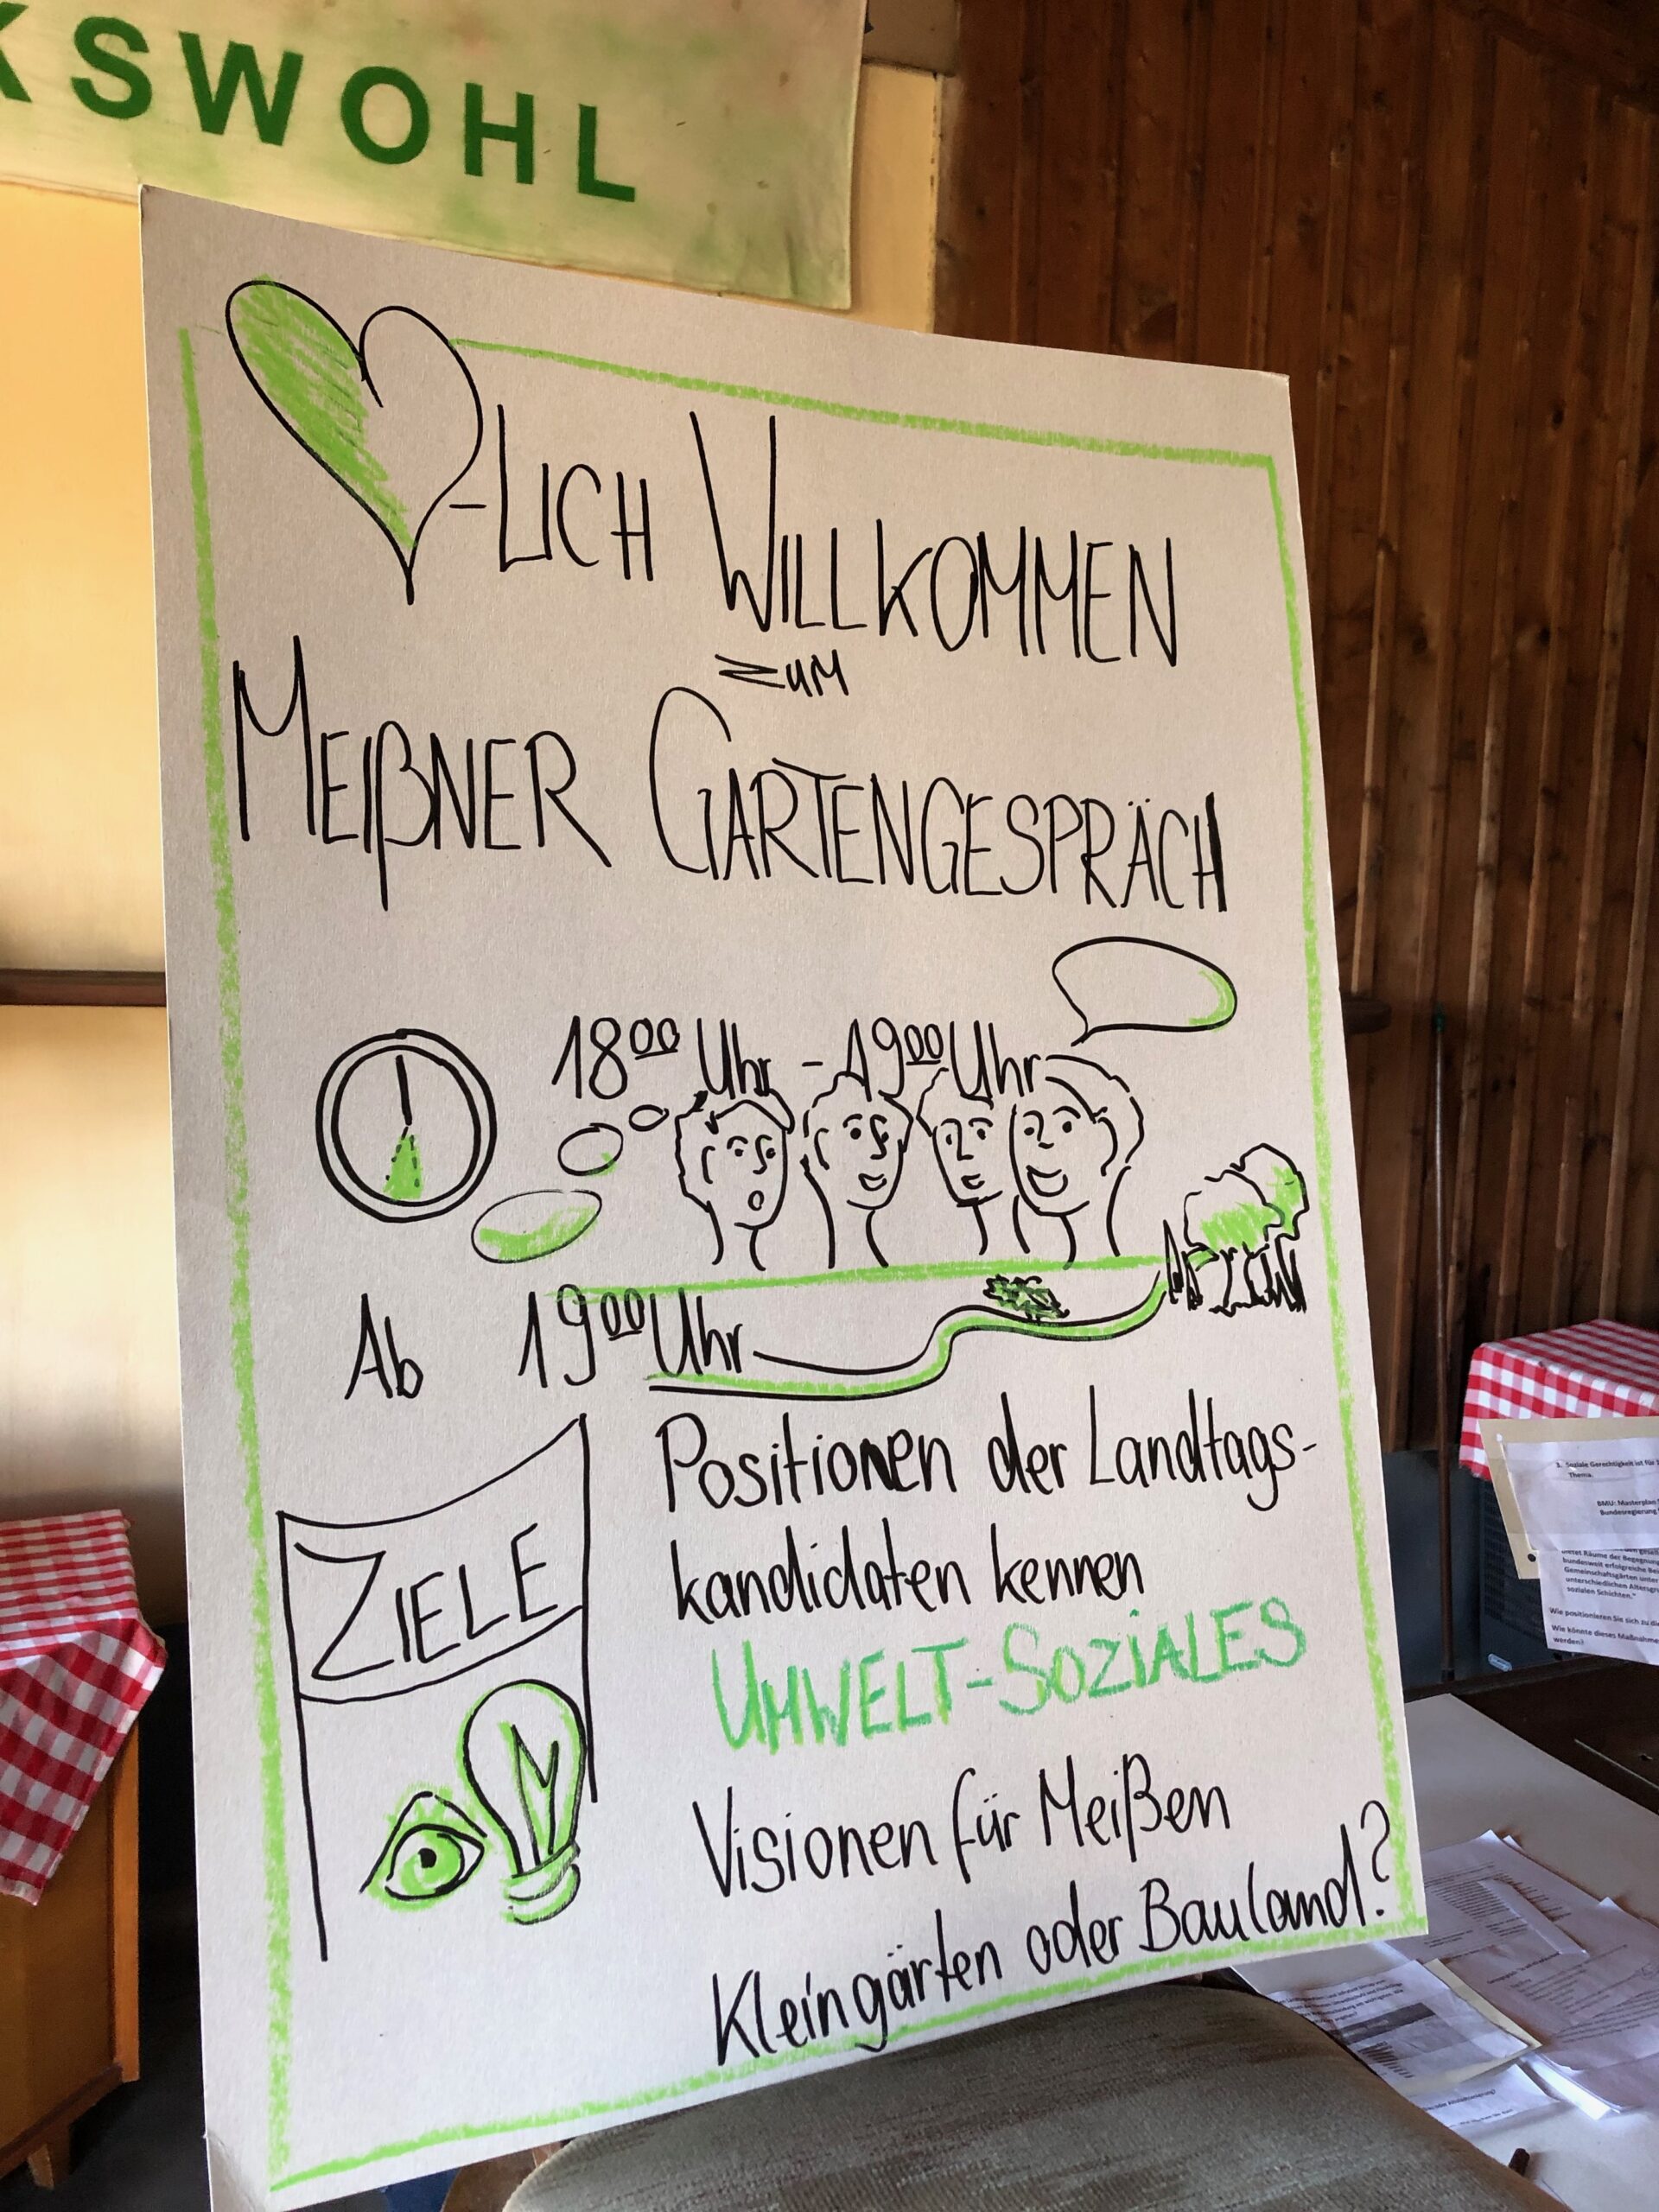 KSWOHL
-LICH WILLKOMMEN
ZUM
MEIßNER GARTENGESPRÄCH
18⁰⁰ Uhr - 19⁰⁰ Uhr
Ab 19⁰⁰ Uhr
ZIELE
Positionen der Landtags-
kandidaten kennen
UMWELT-SOZIALES
Visionen für Meißen
Kleingärten oder Bauland?
3. Soziale Gerechtigkeit ist für
Thema.
BMU: Masterplan
Bundesregierung
bietet Räume der Begegnung
bundesweit erfolgreiche
Gemeinschaftsgärten
unterschiedlichen
sozialen Schichten."
Wie positionieren Sie sich zu
Wie könnte dieses
werden?